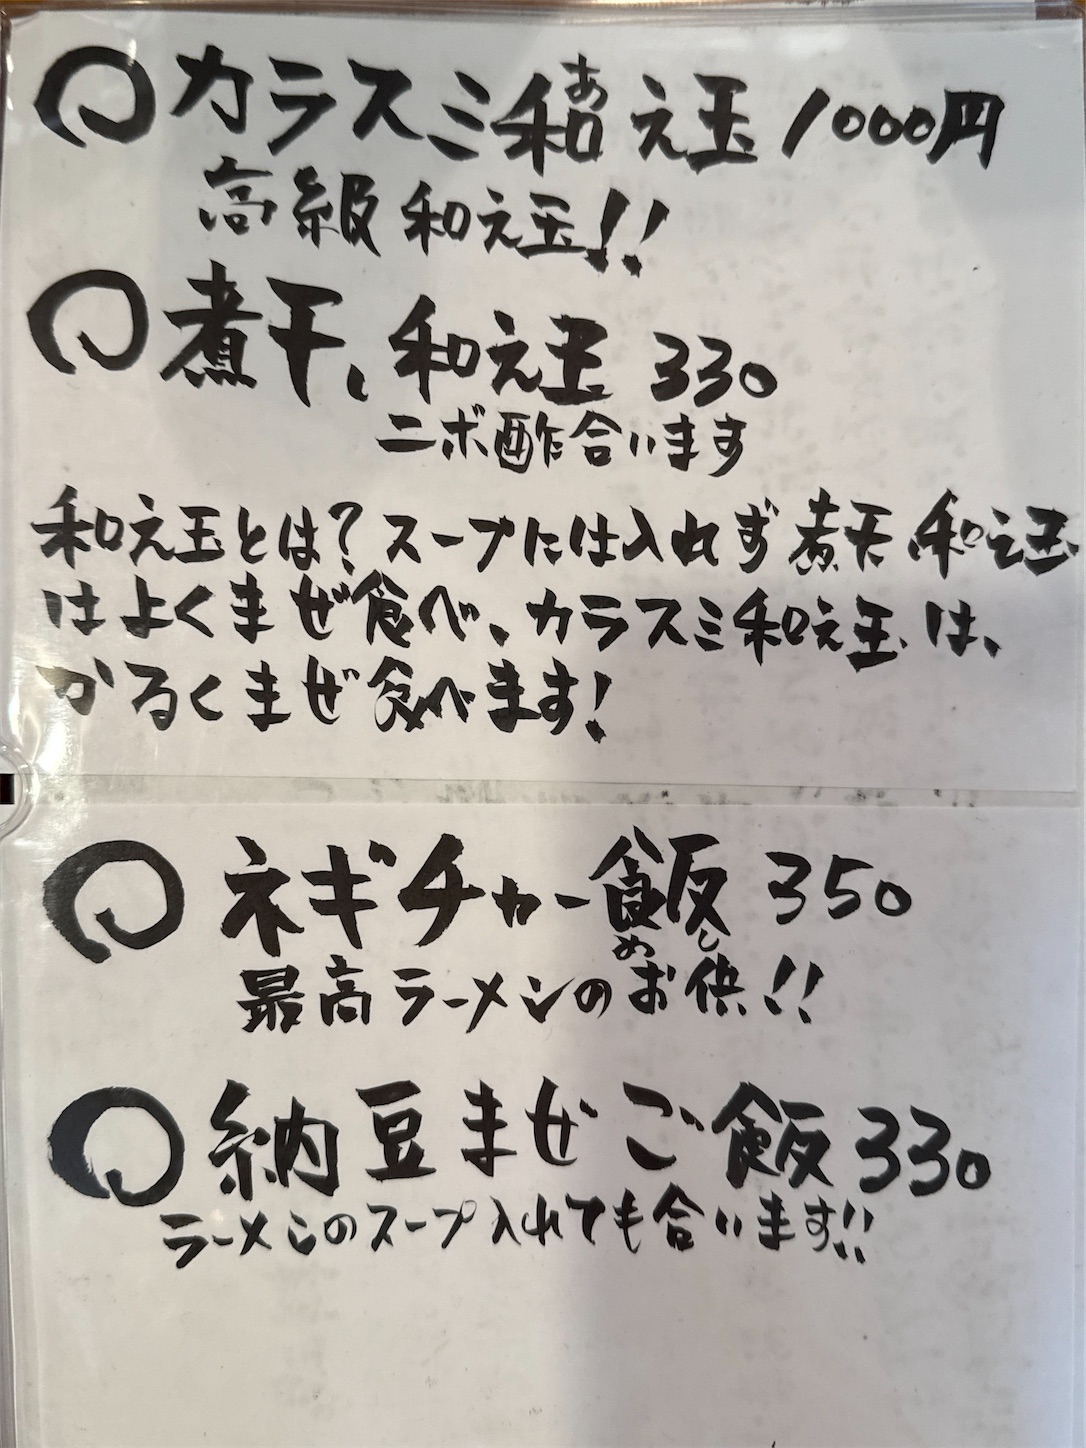 ○カラスミ和え玉 1000円
あ
高級和え玉!!
○煮干し和え玉 330
ニボ酢合います
和え玉とは?スープには入れず煮干し和え玉
はよくまぜ食べ、カラスミ和え玉は、
かるくまぜ食べます!
○ネギチャー飯 350
めし
最高ラーメンのお供!!
○納豆まぜご飯 330
ラーメンのスープ入れても合います!!